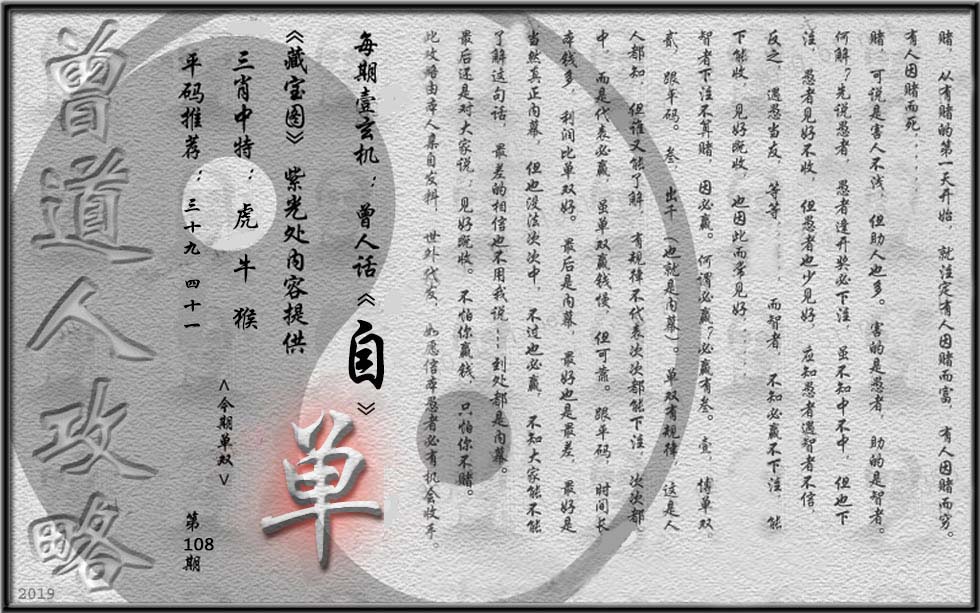 赌，从有赌的第一天开始，就注定有人因赌而富，有人因赌而穷。
有人因赌而死......
赌，可说是害人不浅，但助人也多。害的是愚者，助的是智者。
何解？先说愚者，愚者逢开奖必下注，虽不知中不中，但也下
注，愚者见好不收，但愚者也少见好，应知愚者遇智者不信，
反之，遇愁当友，等等......而智者，不知必赢不下注，能
下能收，见好既收，也因此而常见好......
智者下注不算赌，因必赢。何谓必赢？必赢有叁。壹，博单双，
贰，跟平码。叁，出千（也就是内幕）。单双有规律，这是人
人都知，但谁又能了解，有规律不代表次次都能下注，次次都
中，而是代表必赢，虽单双赢钱慢，但可靠。跟平码，时间长，
本钱多，利润比单双好。最后是内幕，最好也是最差，最好是
当然真正内幕，但也没法次次中，不过也必赢，不知大家能不能
了解这句话，最差的相信也不用我说...到处都是内幕。
最后还是对大家说；见好既收。不怕你赢钱，只怕你不赌。
此攻略由本人集自发料，世外代友，如愿信本愚者必有机会收手。
每期壹玄机：曾人话《自》
《藏宝图》紫光处内容提供
三肖中特：虎 牛 猴
平码推荐：三十九 四十一
<今期单双>
单
第
108
期
曾道人攻略
2019